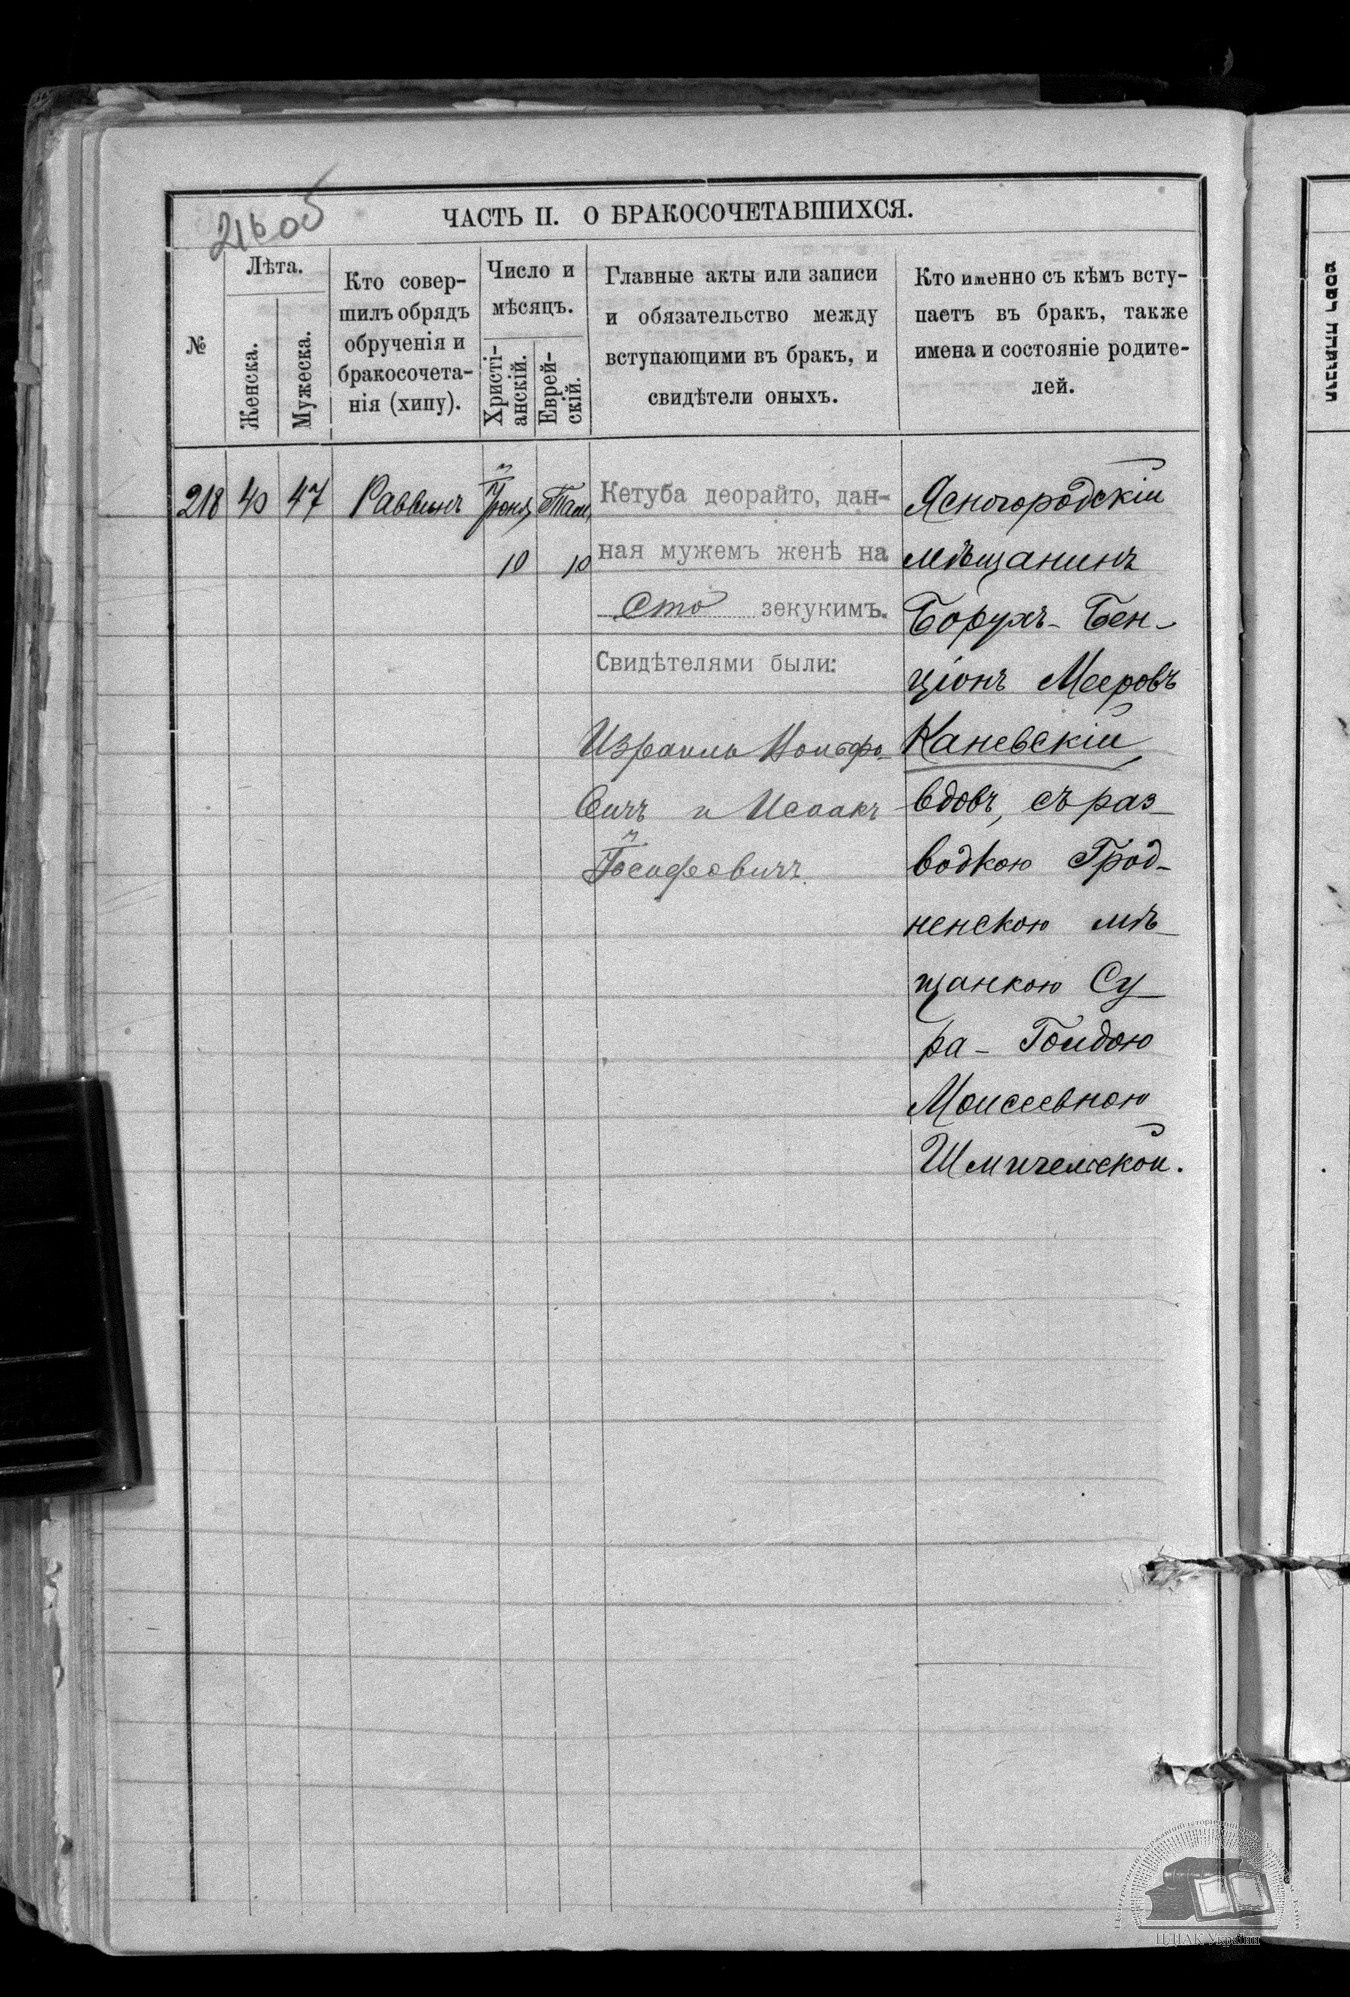 216 об
ЧАСТЬ II. О БРАКОСОЧЕТАВШИХСЯ.
№
Лѣта.
Женска.
Мужеска.
Кто совер-
шилъ обрядъ
обрученія и
бракосочета-
нія (хипу).
Число и
мѣсяцъ.
Христі-
анскій.
Еврей-
скій.
Главные акты или записи
и обязательство между
вступающими въ бракъ, и
свидѣтели оныхъ.
Кто именно съ кѣмъ всту-
паетъ въ бракъ, также
имена и состояніе родите-
лей.
218
40
47
Раввинъ
Іюня
10
Там.
10
Кетуба деорайто, дан-
ная мужемъ женѣ на
Сто зекукимъ.
Свидѣтелями были:
Израиль Вольфо-
вичъ и Исаакъ
Іосифовичъ.
Ясногородскій
мѣщанинъ
Борухъ-Бен-
ціонъ Мееровъ
Каневскій,
вдовъ, съ раз-
водкою Грод-
ненскою мѣ-
щанкою Су-
ра-Голдою
Моисеевною
Шмигельской.
ЦДІАК України